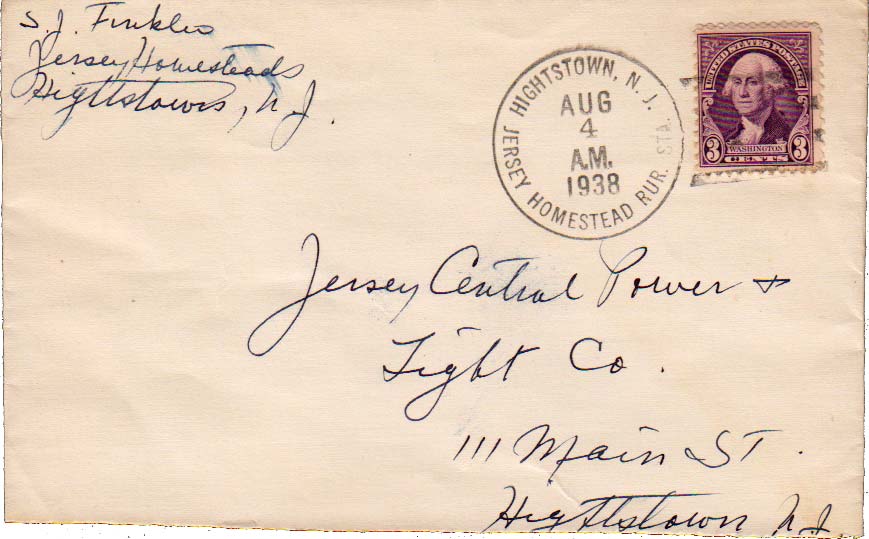 S. J. Finkle
Jersey Homesteads
Hightstown, N.J.
HIGHTSTOWN, N.J.
AUG
4
A.M.
1938
JERSEY HOMESTEAD RUR. STA.
UNITED STATES POSTAGE
WASHINGTON
3 CENTS 3
Jersey Central Power &
Light Co.
111 Main ST.
Hightstown N.J.